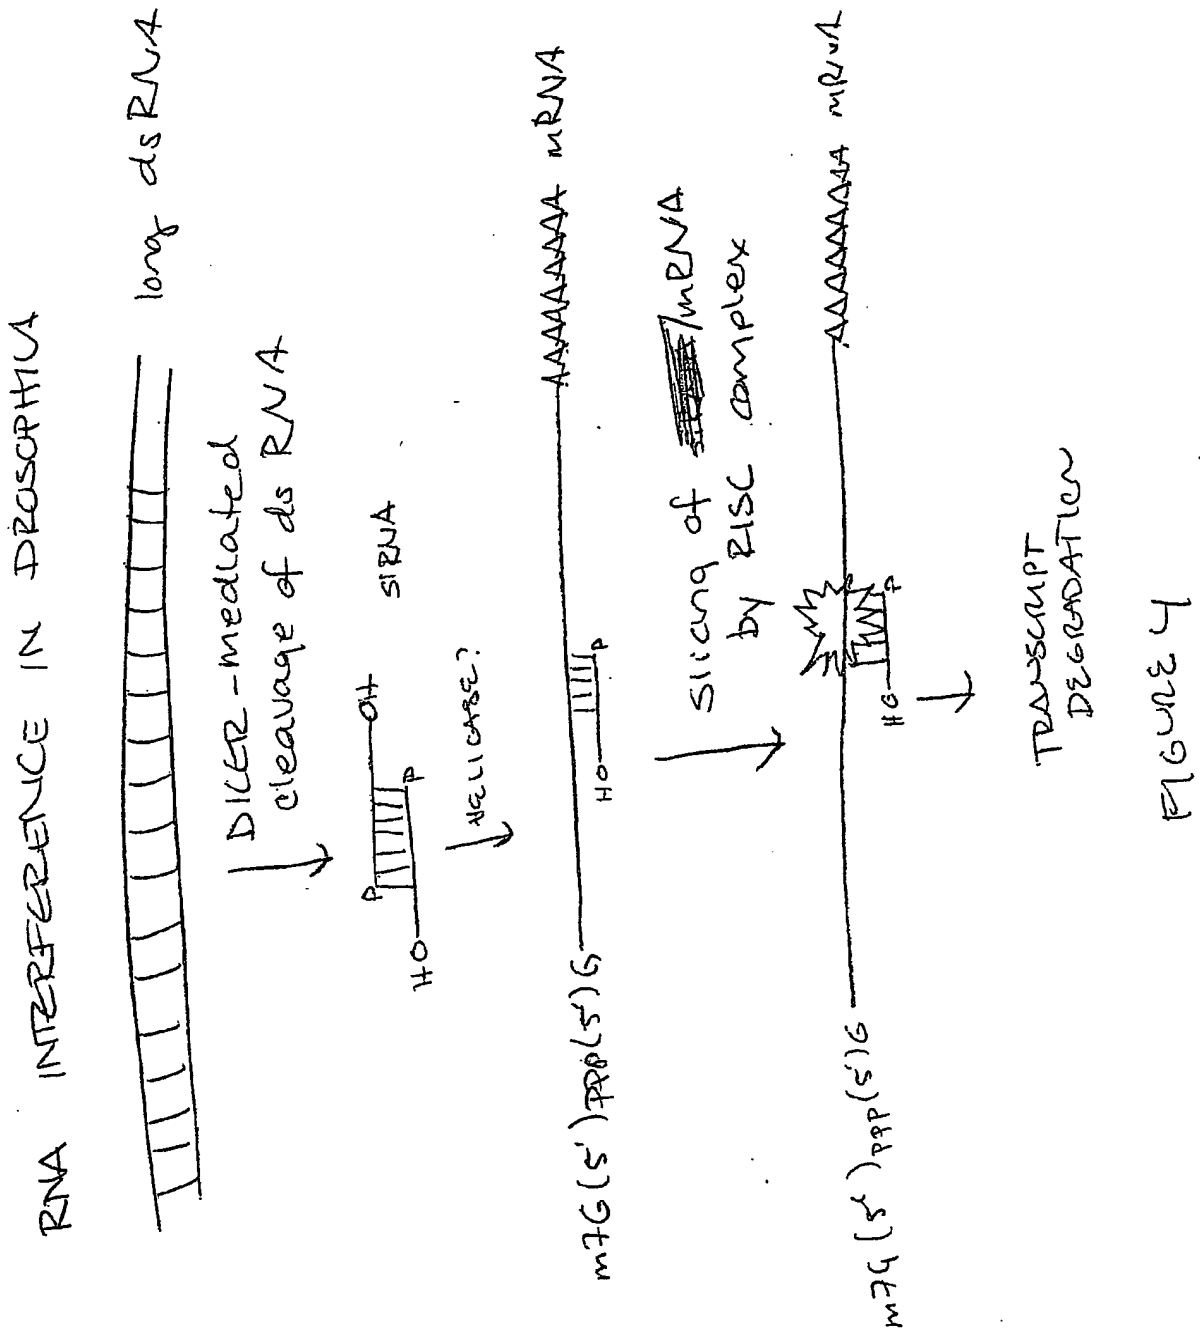 RNA INTERFERENCE IN DROSOPHILA
long dsRNA
DICER-mediated
cleavage of ds RNA
P
OH
HO
P
siRNA
HELICASE?
m7G(5')ppp(5')G
AAAAAAAAA mRNA
HO
P
Slicing of /mRNA
by RISC complex
m7G(5')ppp(5')G
AAAAAAAAA mRNA
HO
P
TRANSCRIPT
DEGRADATION
FIGURE 4